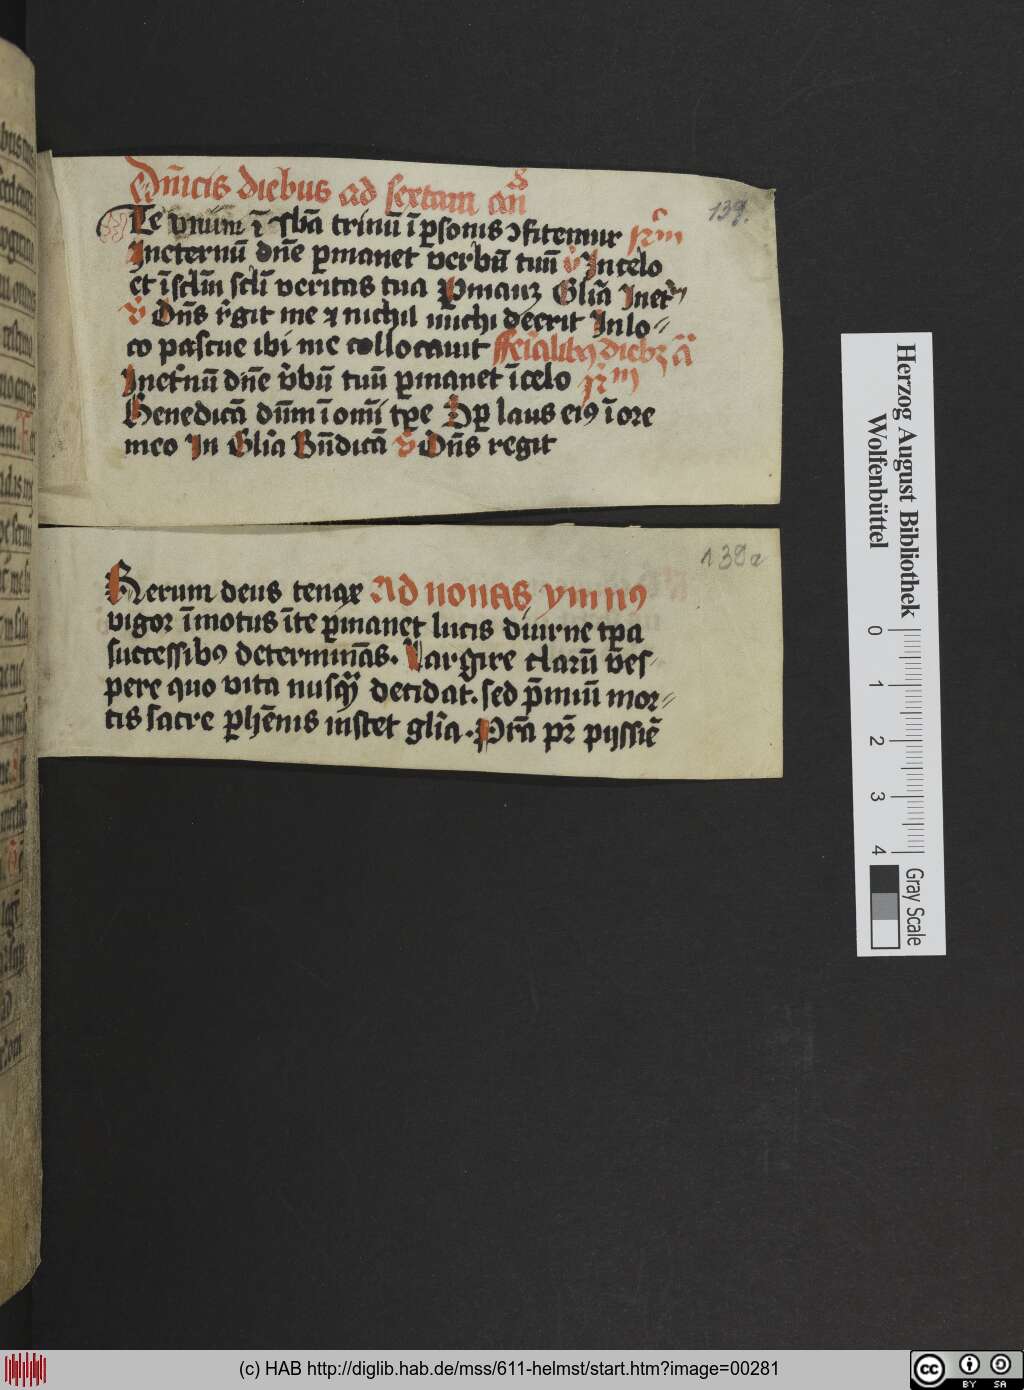 Dn̄icis diebus ad sextam an̄
139.
Te vnum ī sba᷃ trinū ī p̱sonis ↄfitemur R̄m
Ineternū dn̄e p̱manet verbū tuū v̄ In celo
et īsclm̄ scli᷃ veritas tua P̱manꝫ Gl̄ia Inet̄
v̄ Dn̄s r̄git me ⁊ nichil michi deerit In lo⸗
co pascue ibi me collocauit fferīalibꝰ diebꝫ a᷃
Inet̄nū dn̄e v̄bū tuū p̱manet īcelo R̄m
Benedicā dn̄m īomī tp̄e Sp̱ laus eiꝰ īore
meo In Gl̄ia Bn̄dicā v̄ Dn̄s regit
139a
Rerum deus tenax Ad nonas ymnꝰ
vigor īmotus īte p̱manet lucis diurne tp̄a
successibꝰ determinās. Largire clarū ves⸗
pere quo vita nusq̄ decidat. sed p̄miū mor⸗
tis sacre p̱hēnis instet gl̄ia. Prā pr̄ pijssiē
Herzog August Bibliothek
Wolfenbüttel
0 1 2 3 4
Gray Scale
(c) HAB http://diglib.hab.de/mss/611-helmst/start.htm?image=00281
cc BY SA